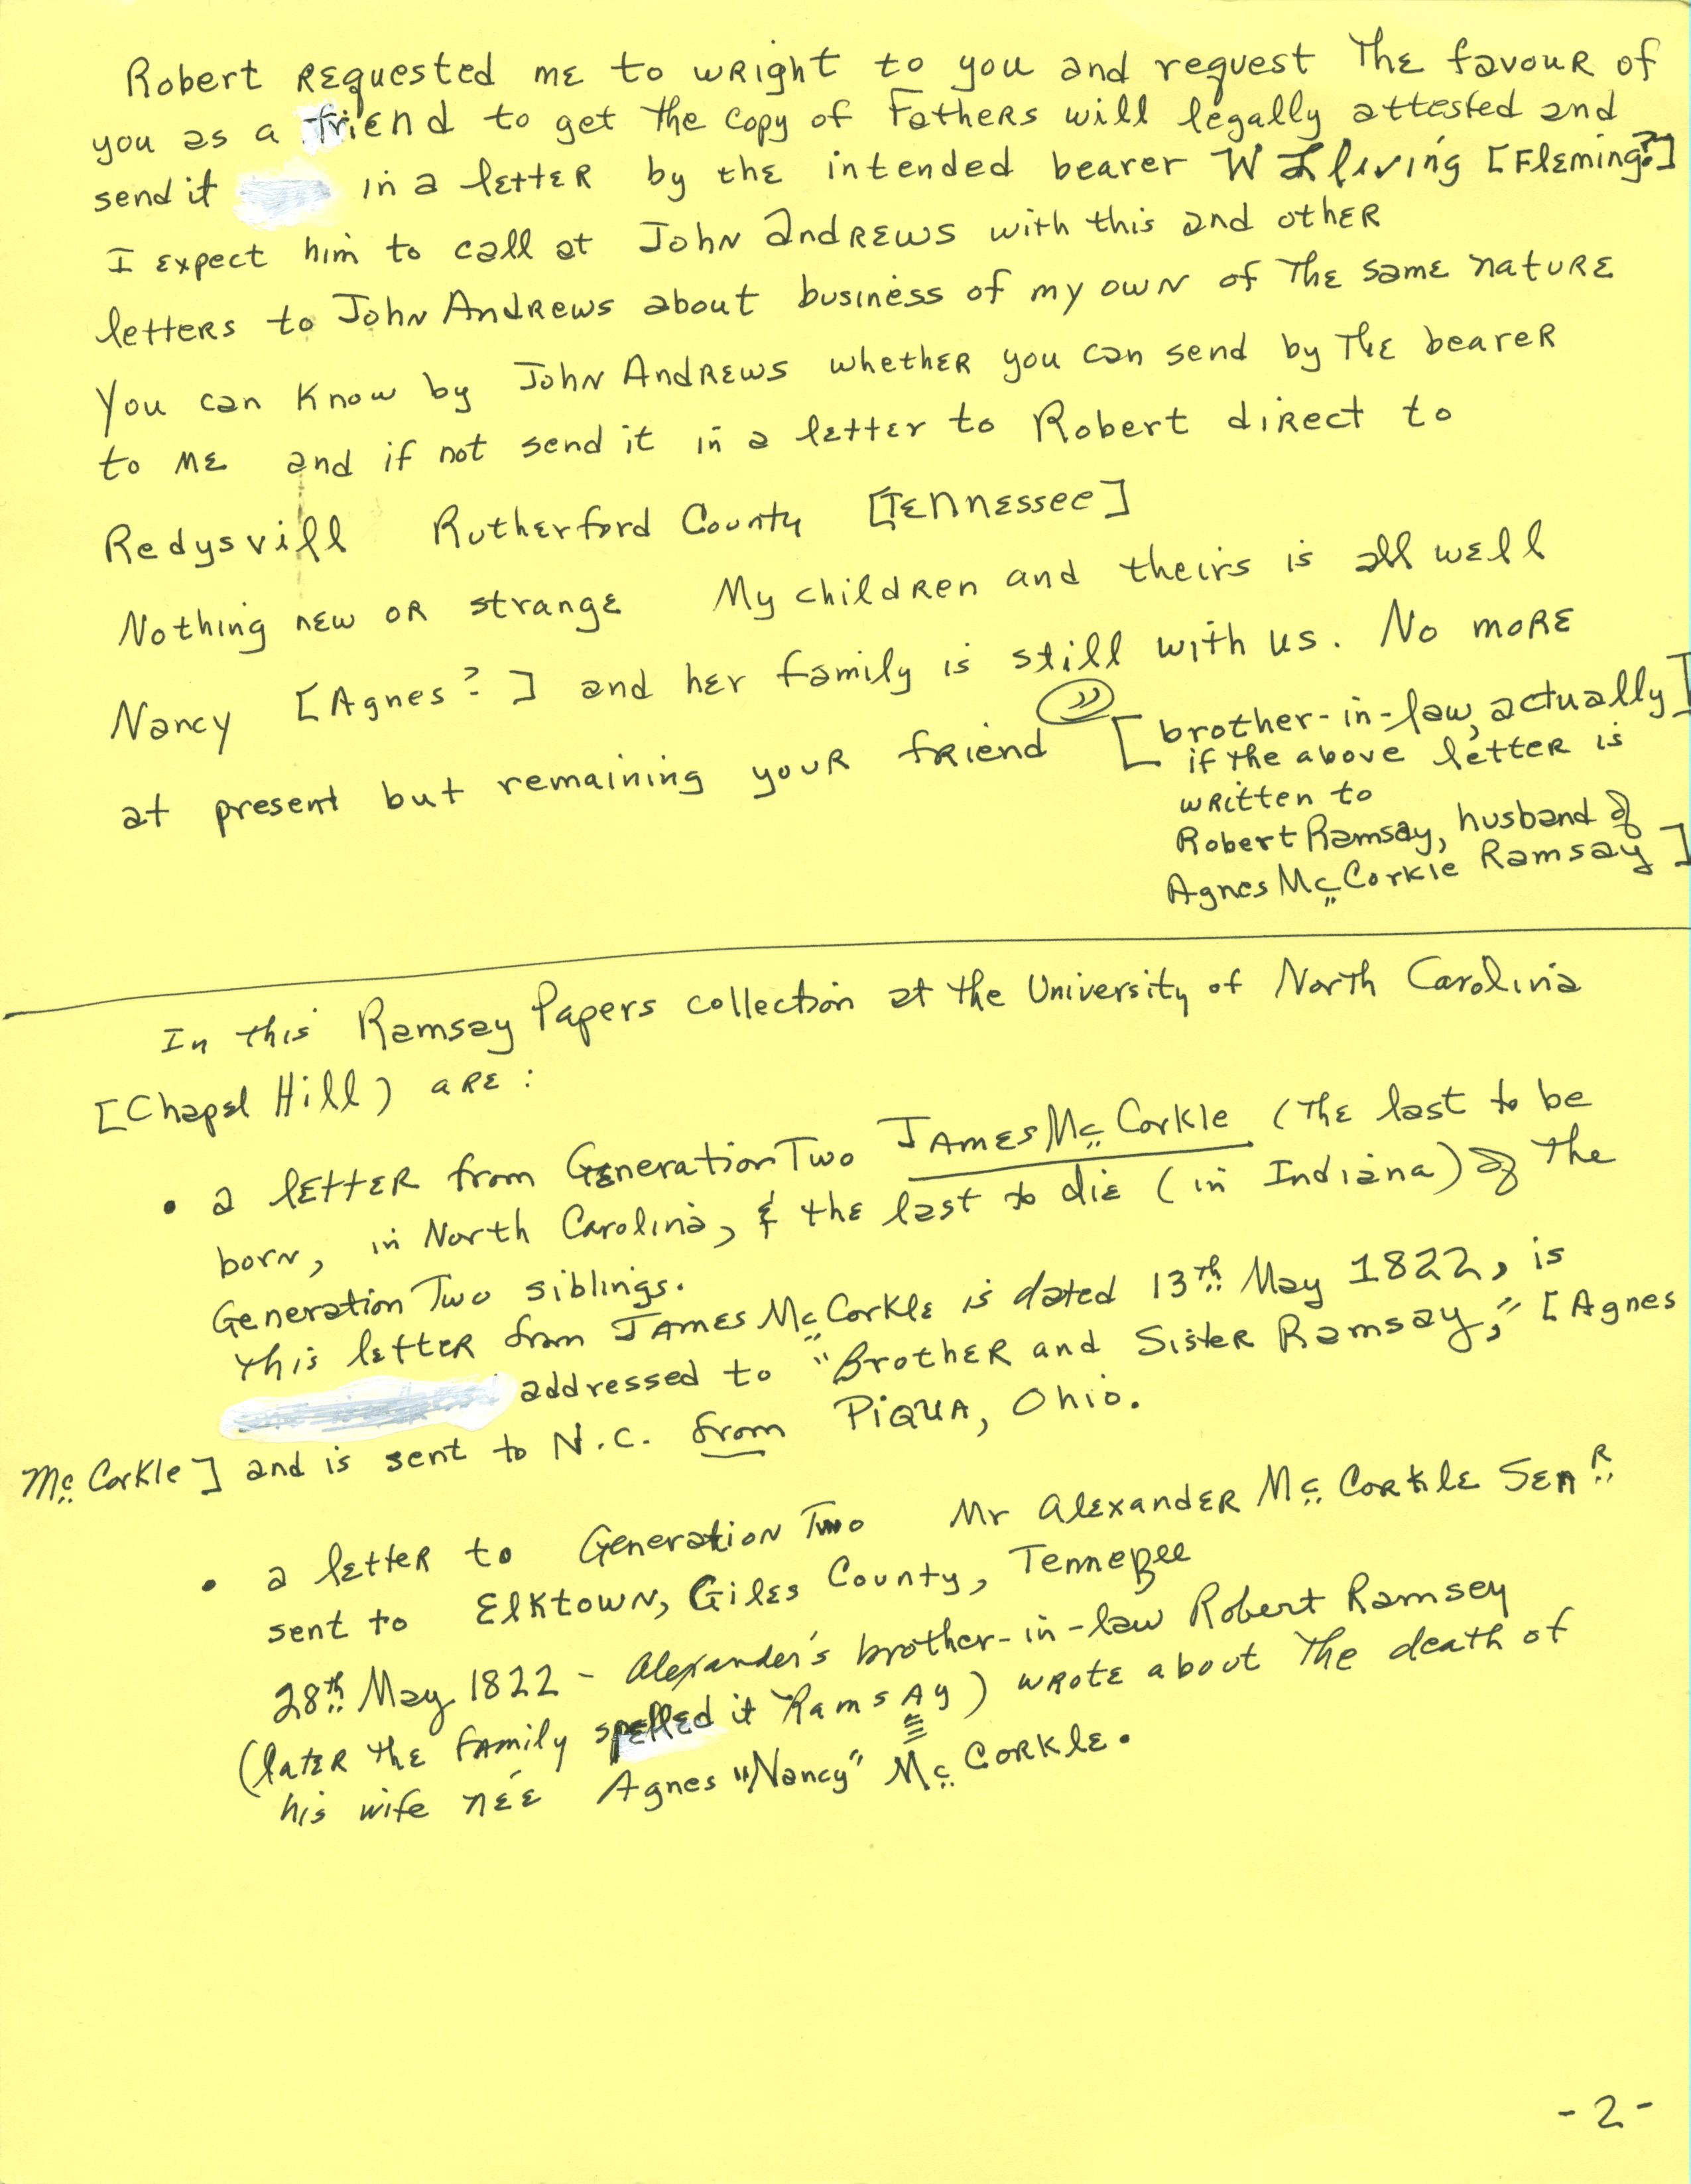 Robert requested me to wright to you and request the favour of
you as a friend to get the copy of Fathers will legally attested and
send it in a letter by the intended bearer W [Fleming?]
I expect him to call at John Andrews with this and other
letters to John Andrews about business of my own of the same nature
You can know by John Andrews whether you can send by the bearer
to me and if not send it in a letter to Robert direct to
Redysvill Rutherford County [Tennessee]
Nothing new or strange My children and theirs is all well
Nancy [Agnes?] and her family is still with us. No more
at present but remaining your friend " [brother-in-law, actually]
if the above letter is
written to
Robert Ramsay, husband of
Agnes McCorkle Ramsay]
In this Ramsay Papers collection at the University of North Carolina
[Chapel Hill) are:
• a letter from Generation Two James McCorkle (the last to be
born, in North Carolina, & the last to die (in Indiana) of the
Generation Two siblings.
This letter from James McCorkle is dated 13th May 1822, is
addressed to "Brother and Sister Ramsay," [Agnes
McCorkle] and is sent to N.C. from Piqua, Ohio.
• a letter to Generation Two Mr Alexander McCorkle SenR
sent to Elktown, Giles County, Tenneßee
28th May 1822 - Alexander's brother-in-law Robert Ramsey
(later the family spelled it "Ramsay) wrote about the death of
his wife née Agnes "Nancy" McCorkle.
-2-